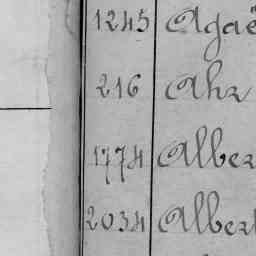 1245 Agaë
216 Ahr
1774 Alber
2034 Albert